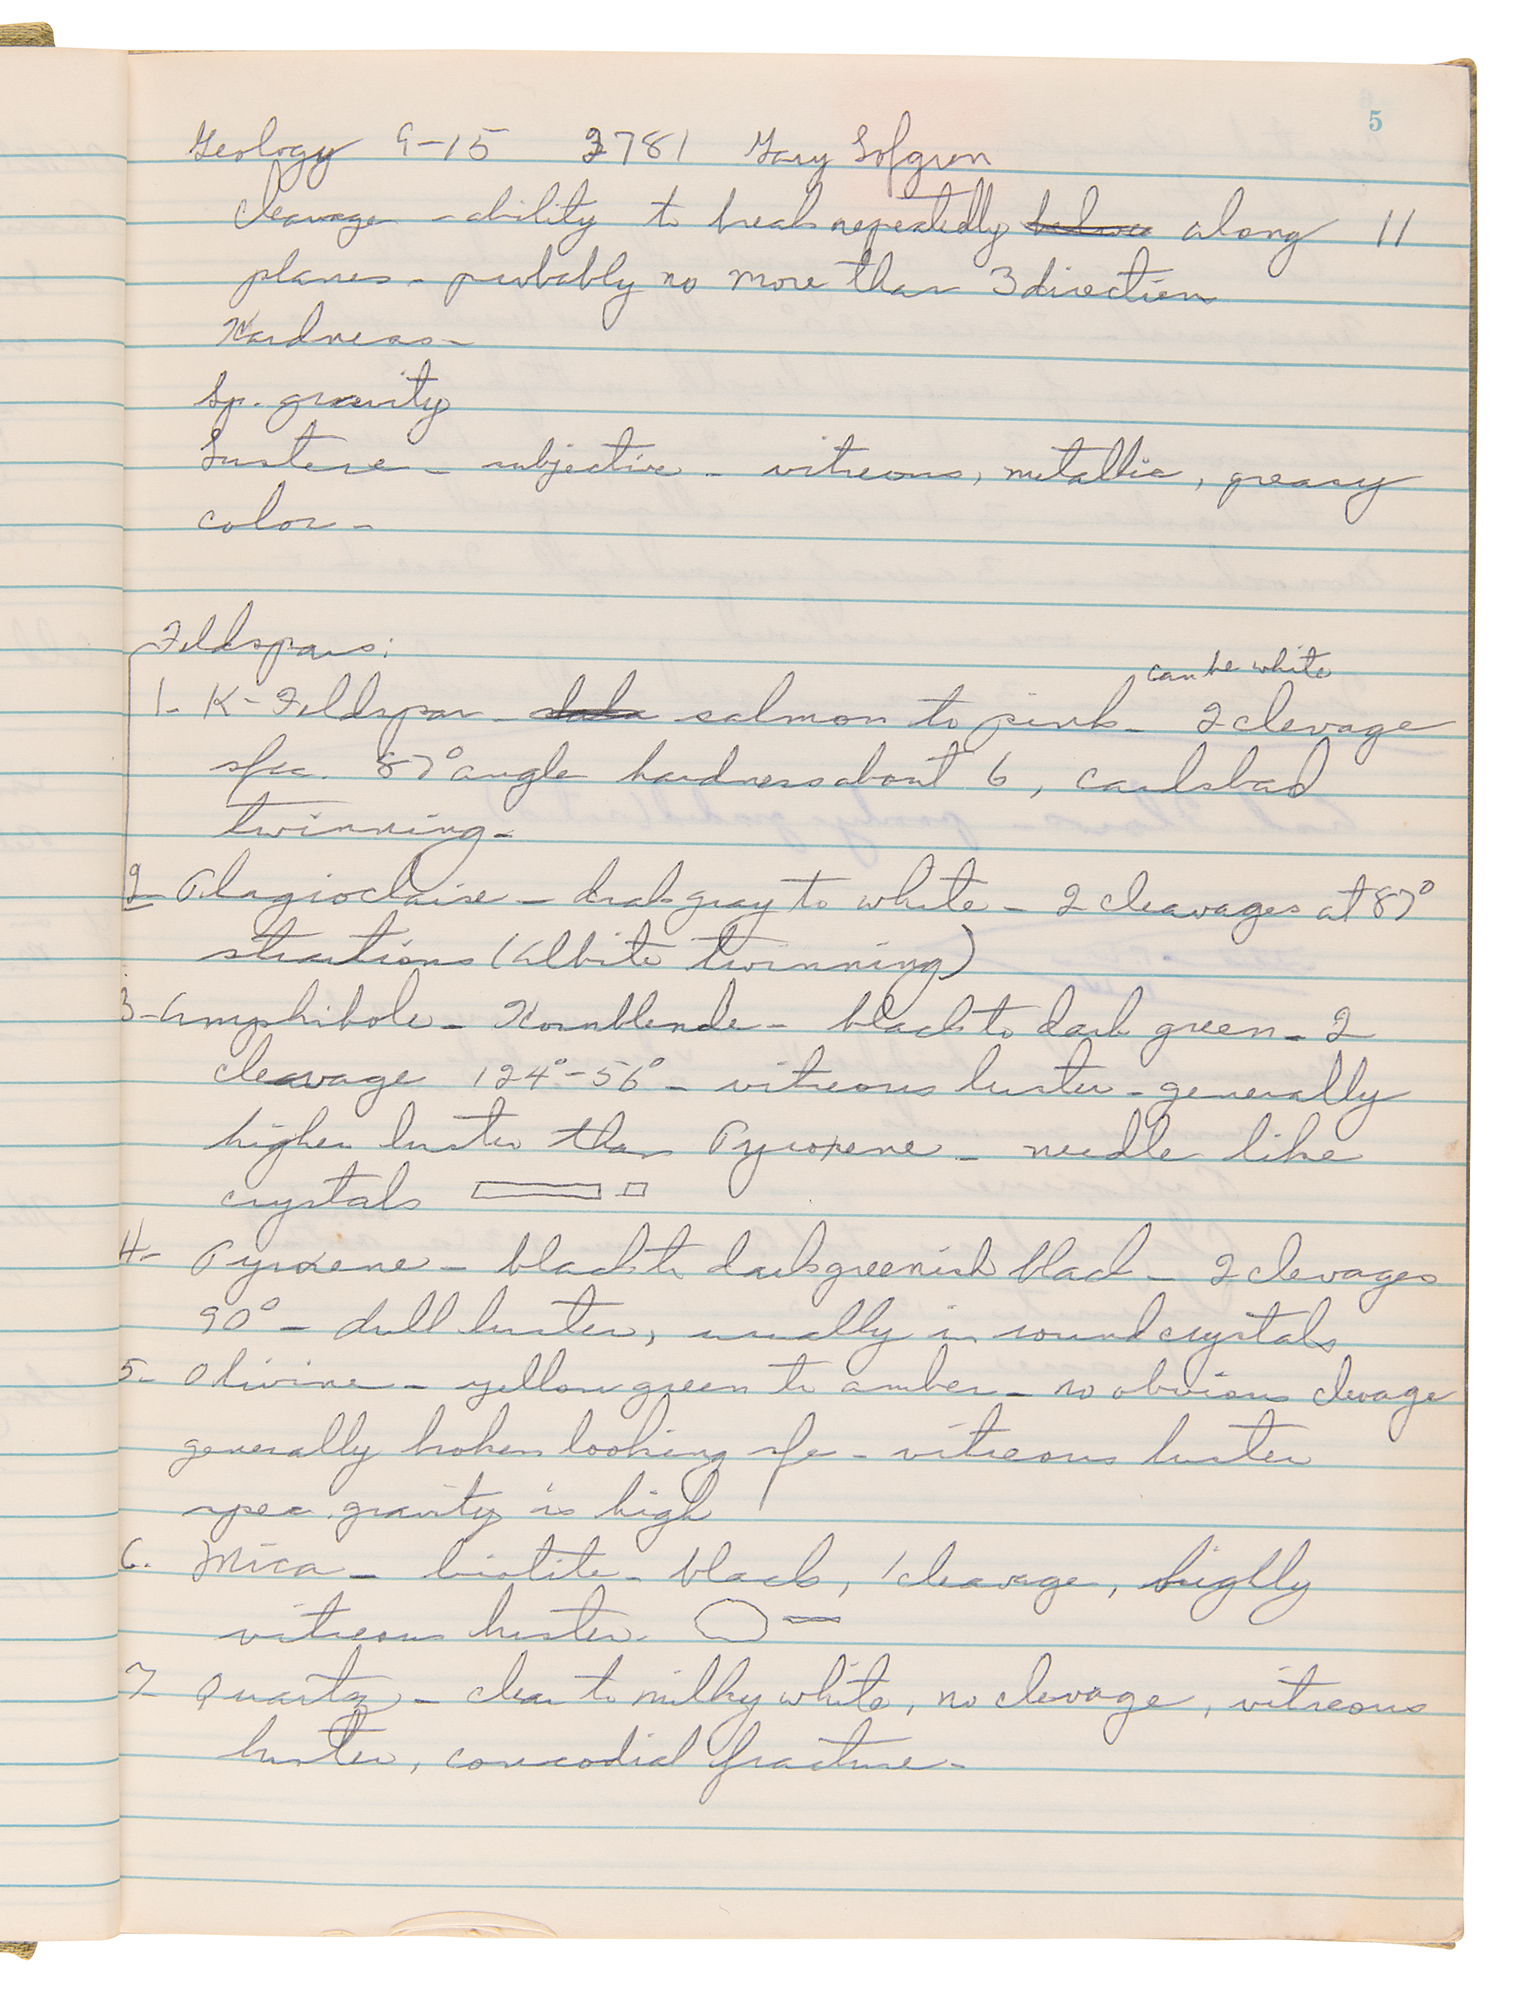 5
Geology 9-15 3781 Gary Lofgren
Cleavage - ability to break repeatedly along 11
planes - probably no more than 3 direction
Hardness -
Sp. gravity
Lustere - subjective - vitreous, metallic, greasy
color -
Feldspars:
can be white
1- K-Feldspar - salmon to pink - 2 clevage
sfcc. 87° angle hardness about 6, carlsbad
twinning -
2- Plagioclaise - drab gray to white - 2 cleavages at 87°
striations (Albite twinning)
3- Amphibole - Hornblende - black to dark green - 2
cleavage 124°-56° - vitreous luster - generally
higher luster than Pyroxene - needle like
crystals
4- Pyroxene - black to dark greenish black - 2 clevages
90° - dull luster, usually in round crystals
5- Olivine - yellow green to amber - no obvious clevage
generally broken looking sfc - vitreous luster
spec. gravity is high
6. Mica - biotite - black, 1 cleavage, highly
vitreous luster.
7- Quartz - clear to milky white, no clevage, vitreous
luster, concodial fracture -